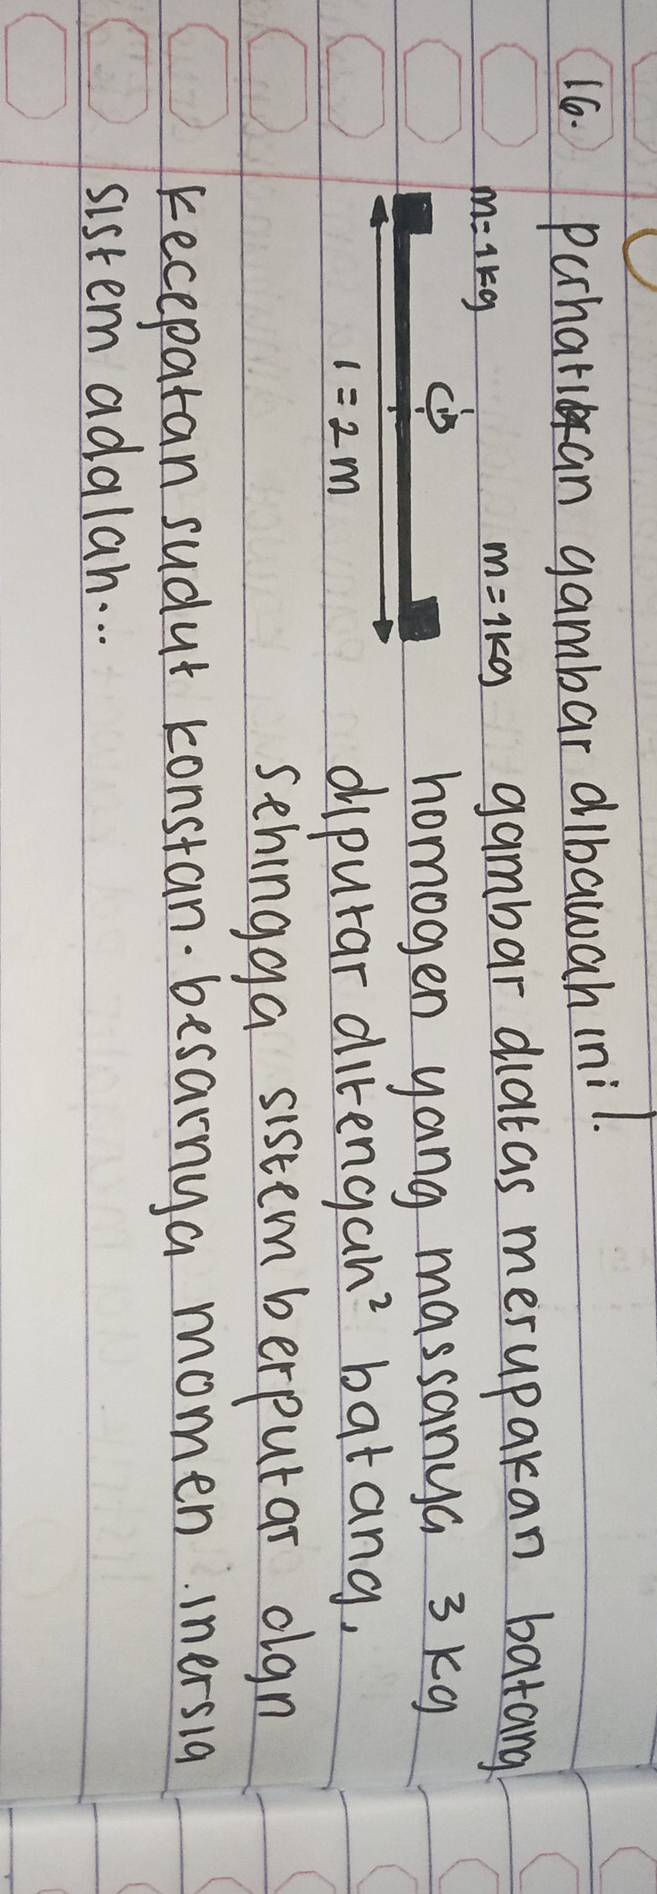 16. Perhatikan gambar dibawah ini!.
m=1kg m=1kg gambar diatas merupakan batang
homogen yang massanya 3 kg
l=2m diputar ditengah² batang,
sehingga sistem berputar dgn
kecepatan sudut konstan. besarnya momen inersia
sistem adalah...